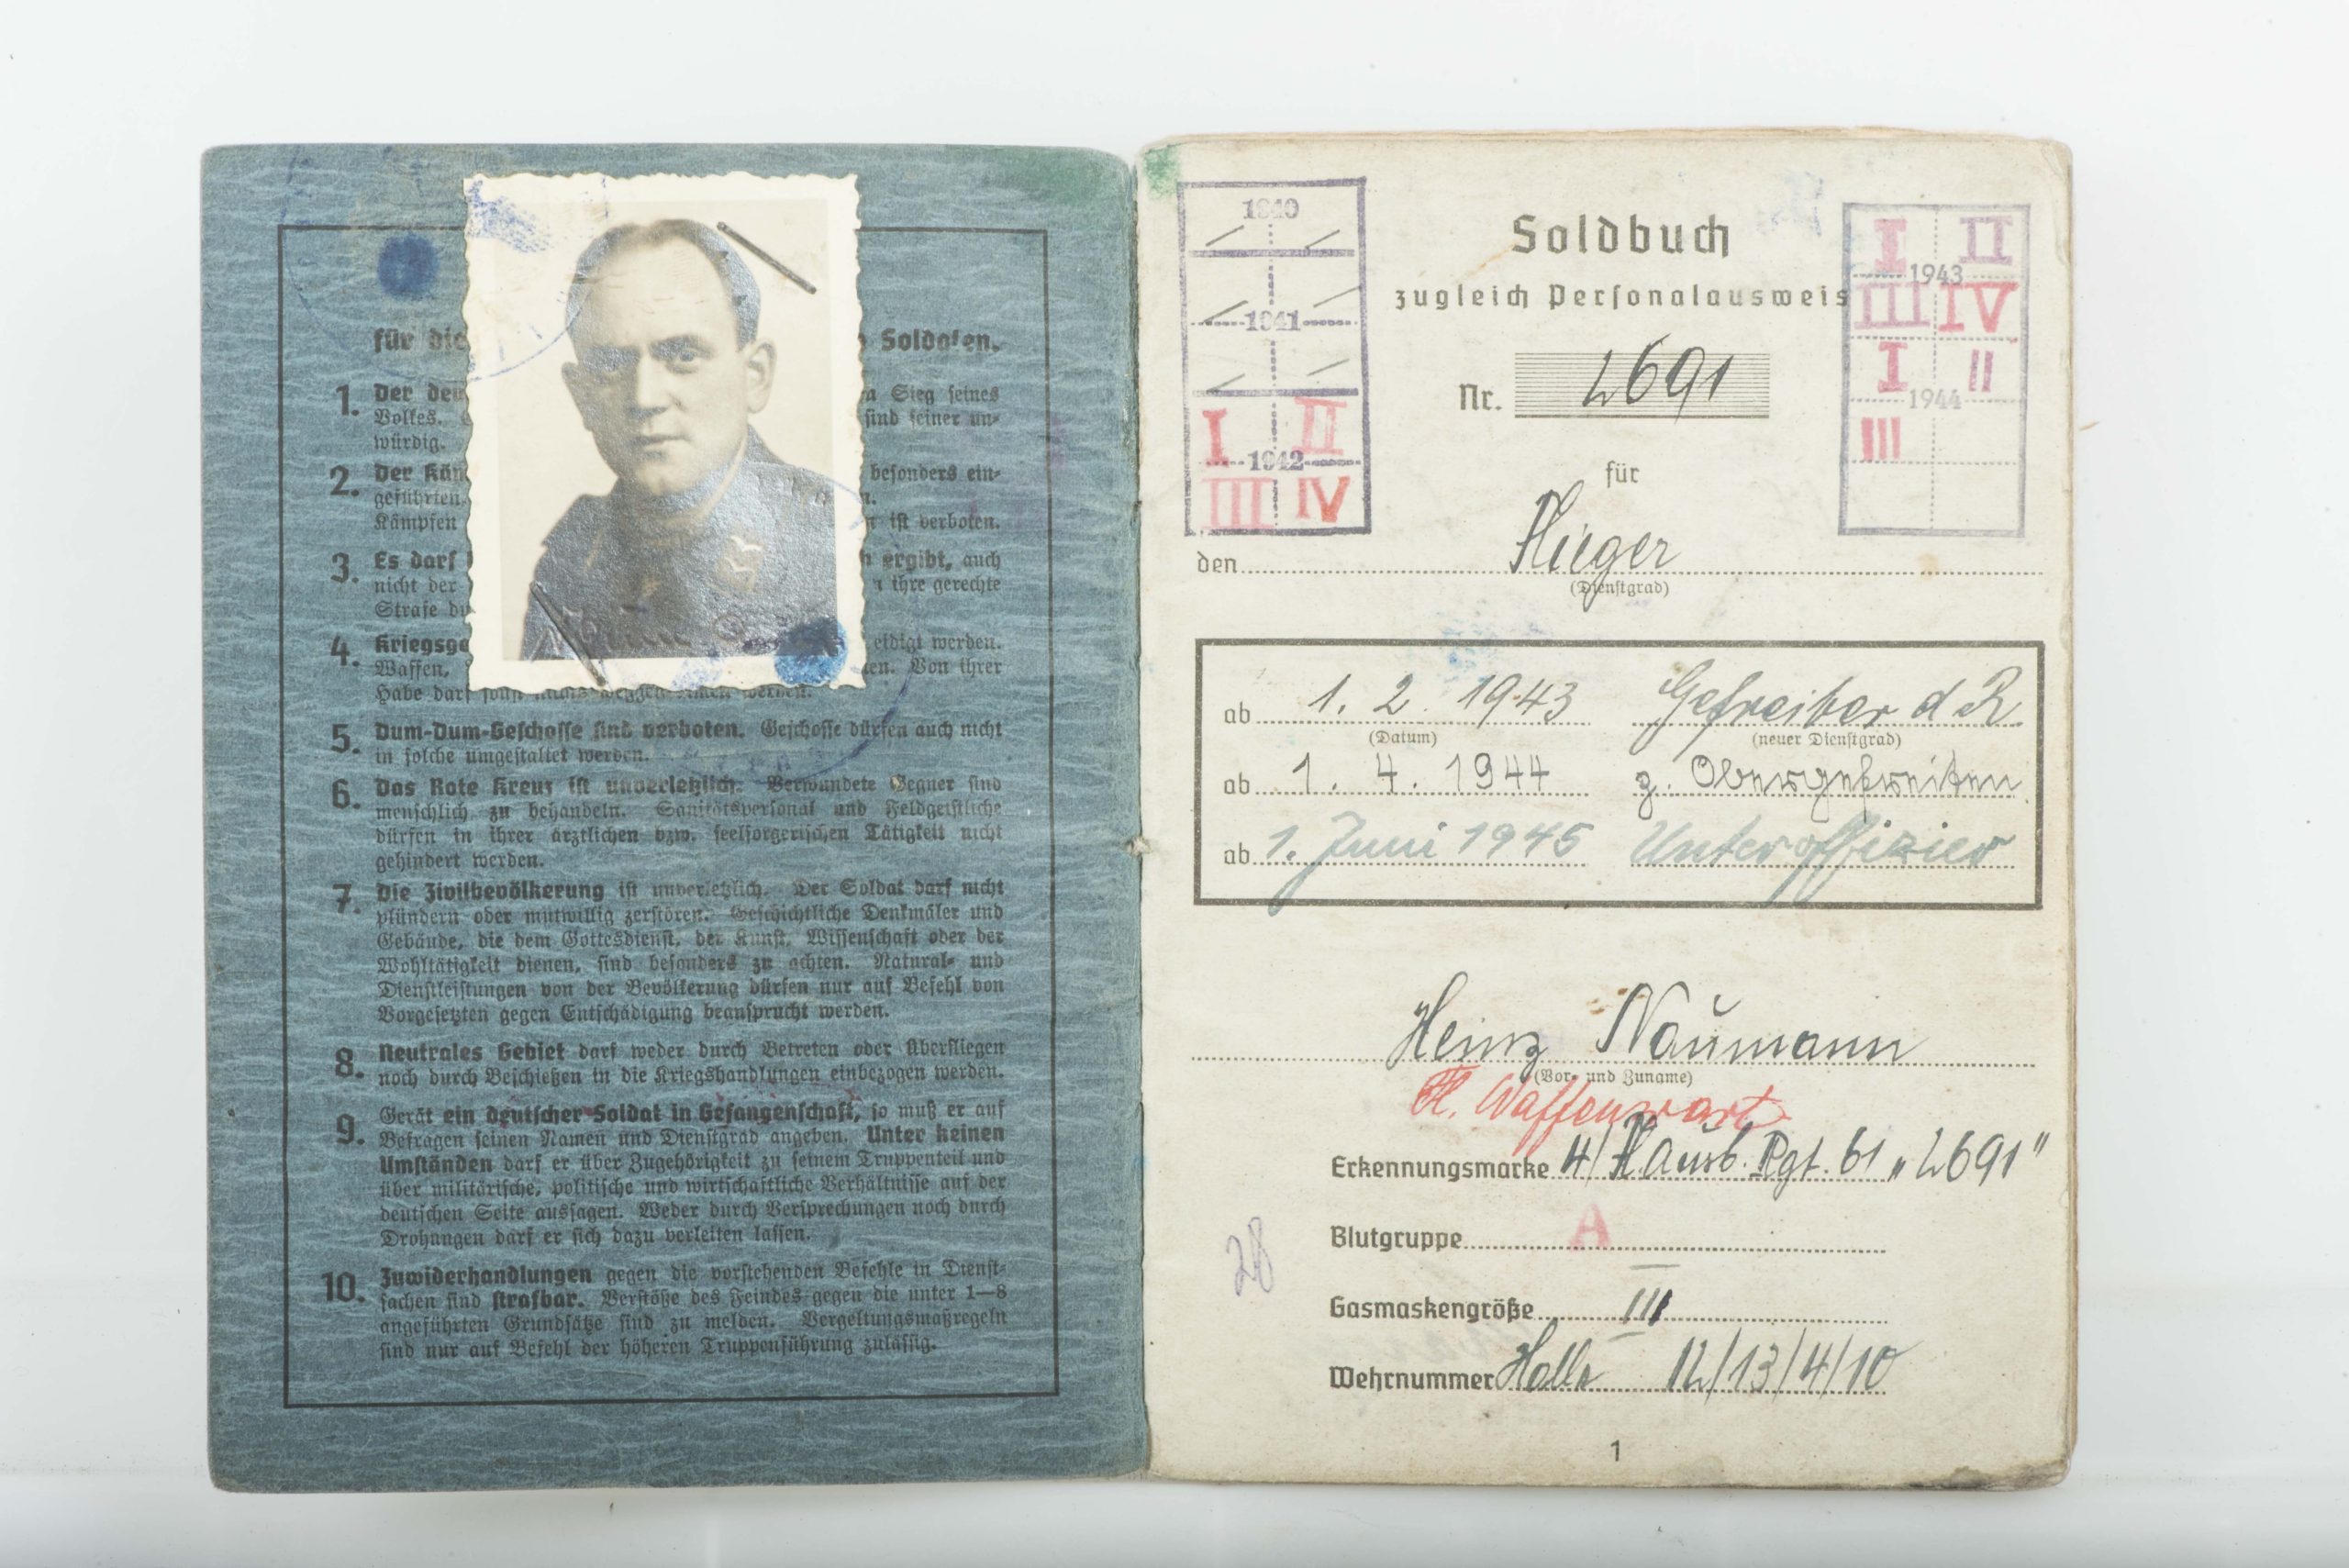 für die
Soldaten.
1. Der deu
n Sieg seines
Volkes.
sind seiner un-
würdig.
2. Der Käm
besonders ein-
geführten
Kämpfen
ist verboten.
3. Es darf
ergibt, auch
nicht der
ihre gerechte
Strafe du
4. Kriegsge
eidigt werden.
Waffen,
en. Von ihrer
Habe darf sonst nichts weggenommen werden.
5. Dum-Dum-Geschosse sind verboten. Geschosse dürfen auch nicht
in solche umgestaltet werden.
6. Das Rote Kreuz ist unverletzlich. Verwundete Gegner sind
menschlich zu behandeln. Sanitätspersonal und Feldgeistliche
dürfen in ihrer ärztlichen bzw. seelsorgerischen Tätigkeit nicht
gehindert werden.
7. Die Zivilbevölkerung ist unverletzlich. Der Soldat darf nicht
plündern oder mutwillig zerstören. Geschichtliche Denkmäler und
Gebäude, die dem Gottesdienst, der Kunst, Wissenschaft oder der
Wohltätigkeit dienen, sind besonders zu achten. Natural- und
Dienstleistungen von der Bevölkerung dürfen nur auf Befehl von
Vorgesetzten gegen Entschädigung beansprucht werden.
8. Neutrales Gebiet darf weder durch Betreten oder Überfliegen
noch durch Beschießen in die Kriegshandlungen einbezogen werden.
9. Gerät ein deutscher Soldat in Gefangenschaft, so muß er auf
Befragen seinen Namen und Dienstgrad angeben. Unter keinen
Umständen darf er über Zugehörigkeit zu seinem Truppenteil und
über militärische, politische und wirtschaftliche Verhältnisse auf der
deutschen Seite aussagen. Weder durch Versprechungen noch durch
Drohungen darf er sich dazu verleiten lassen.
10. Zuwiderhandlungen gegen die vorstehenden Befehle in Dienst-
sachen sind strafbar. Verstöße des Feindes gegen die unter 1—8
angeführten Grundsätze sind zu melden. Vergeltungsmaßregeln
sind nur auf Befehl der höheren Truppenführung zulässig.
1940
1941
I II
1942
III IV
Soldbuch
zugleich Personalausweis
Nr. 2691
I II
1943
III IV
I II
1944
III
für
den Flieger
(Dienstgrad)
ab 1. 2. 1943 Gefreiter d R.
(Datum) (neuer Dienstgrad)
ab 1. 4. 1944 z. Obergefreiten
ab 1. Juni 1945 Unteroffizier
Heinz Naumann
(Vor- und Zuname)
Fl. Waffenwart
Erkennungsmarke 4/Fl. Ausb. Rgt. 61 „2691"
Blutgruppe A
28
Gasmaskengröße III
Wehrnummer Halle 12/13/4/10
1